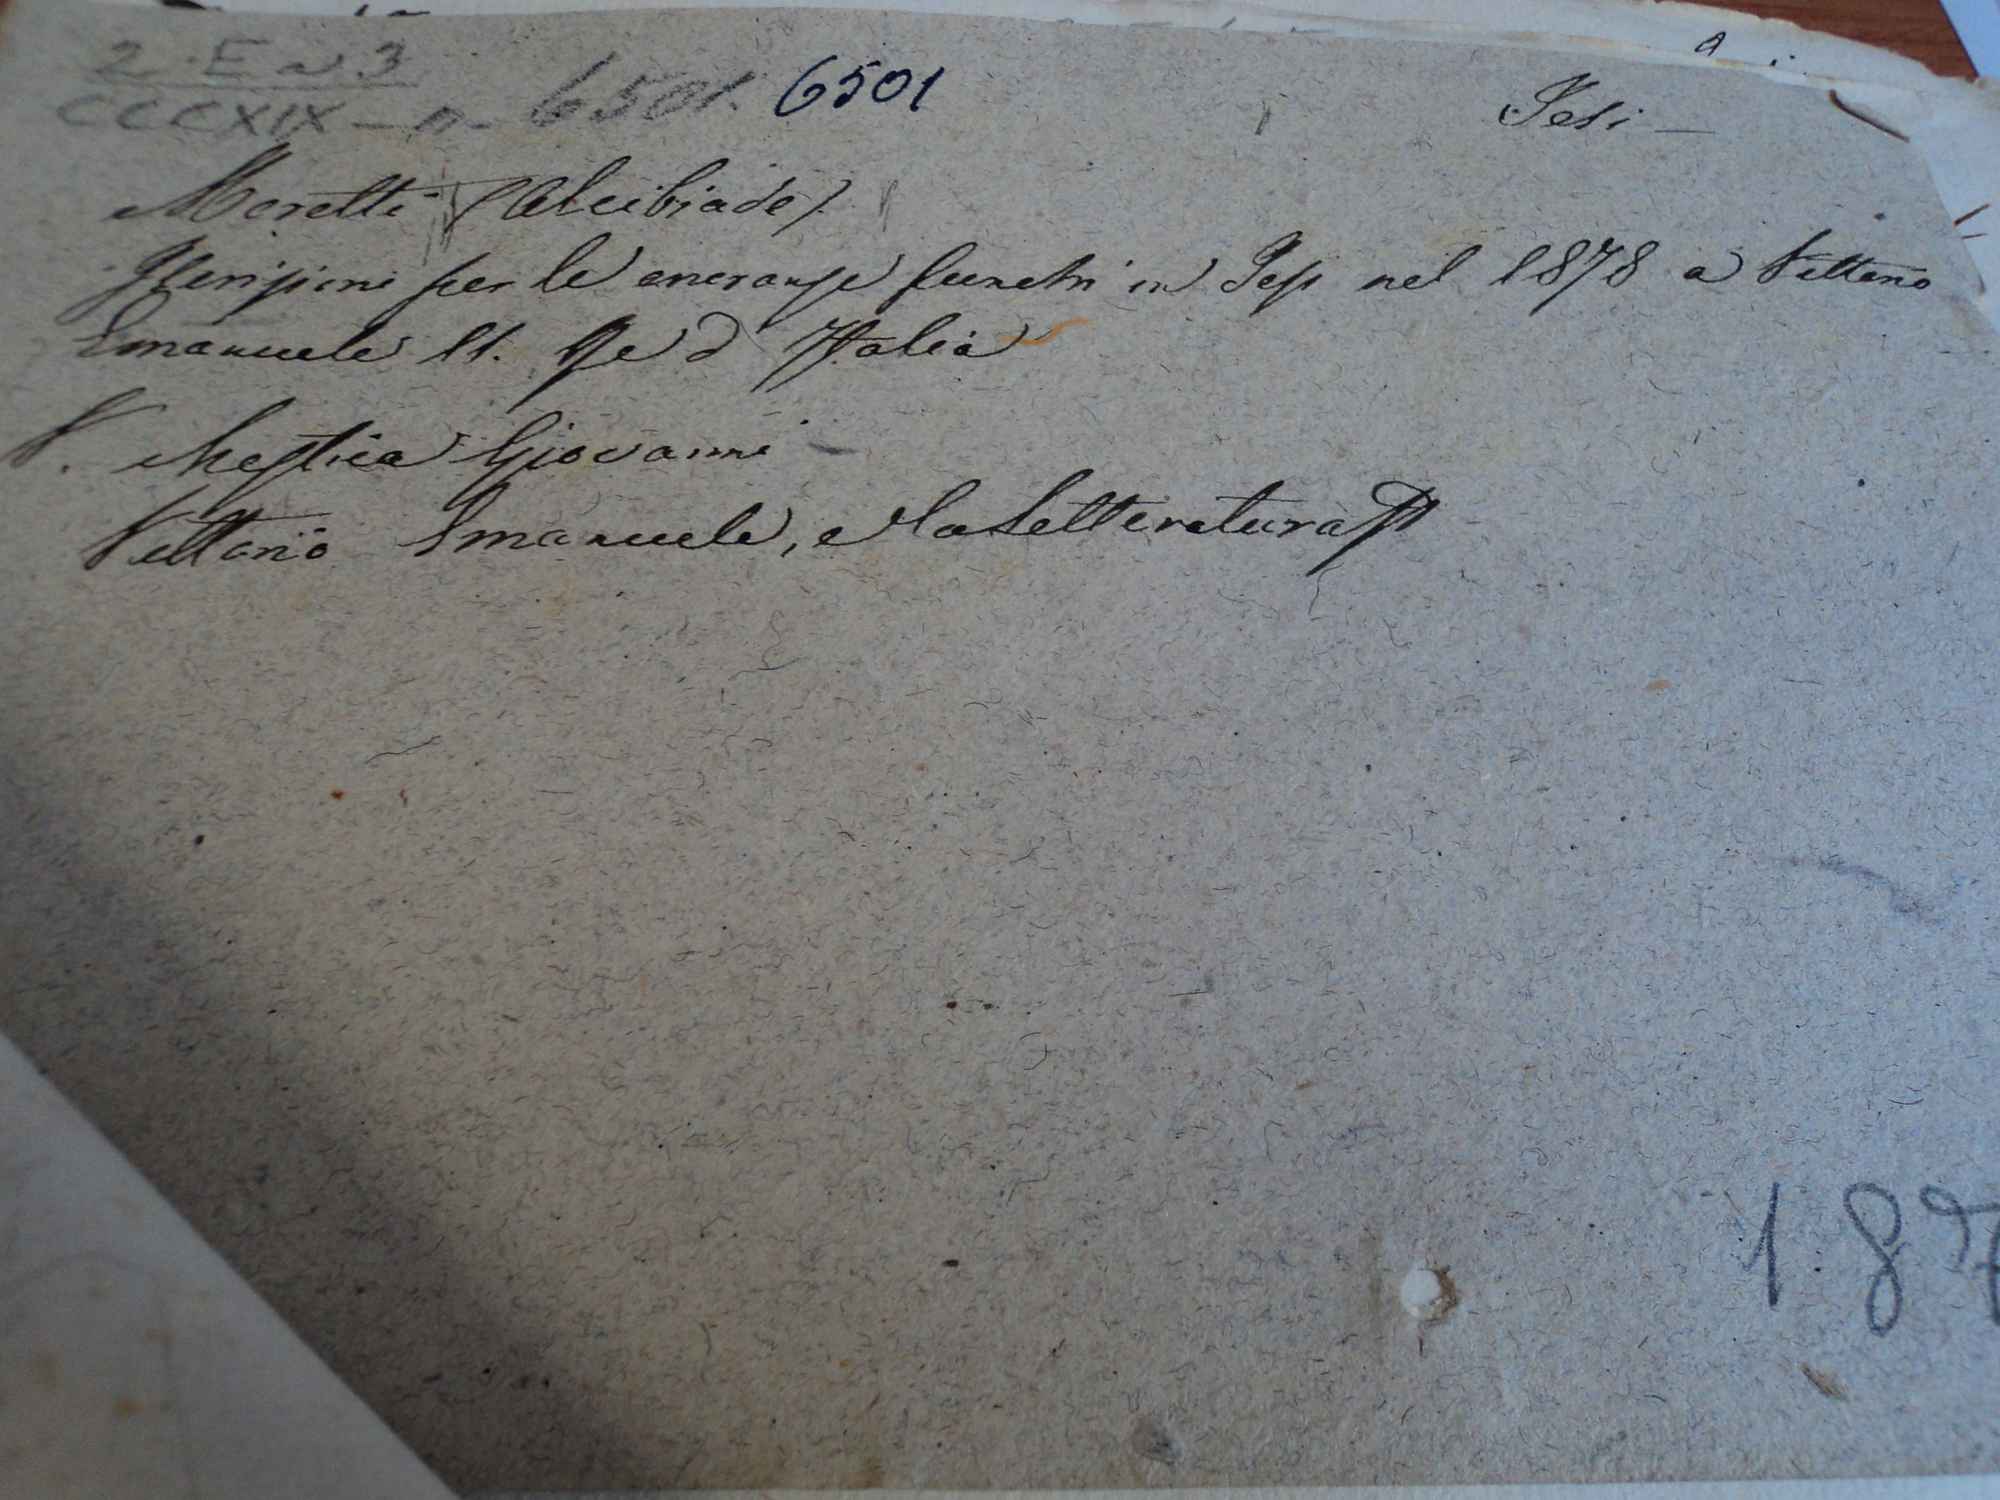 2. E n 3
CCCXIX - n. 6501. 6501
Jesi -
Moretti (Alcibiade).
Iscrizioni per le onoranze funebri in Jesi nel 1878 a Vittorio
Emanuele II. Re d'Italia
V. Mestica Giovanni
Vittorio Emanuele, e la Letteratura
187